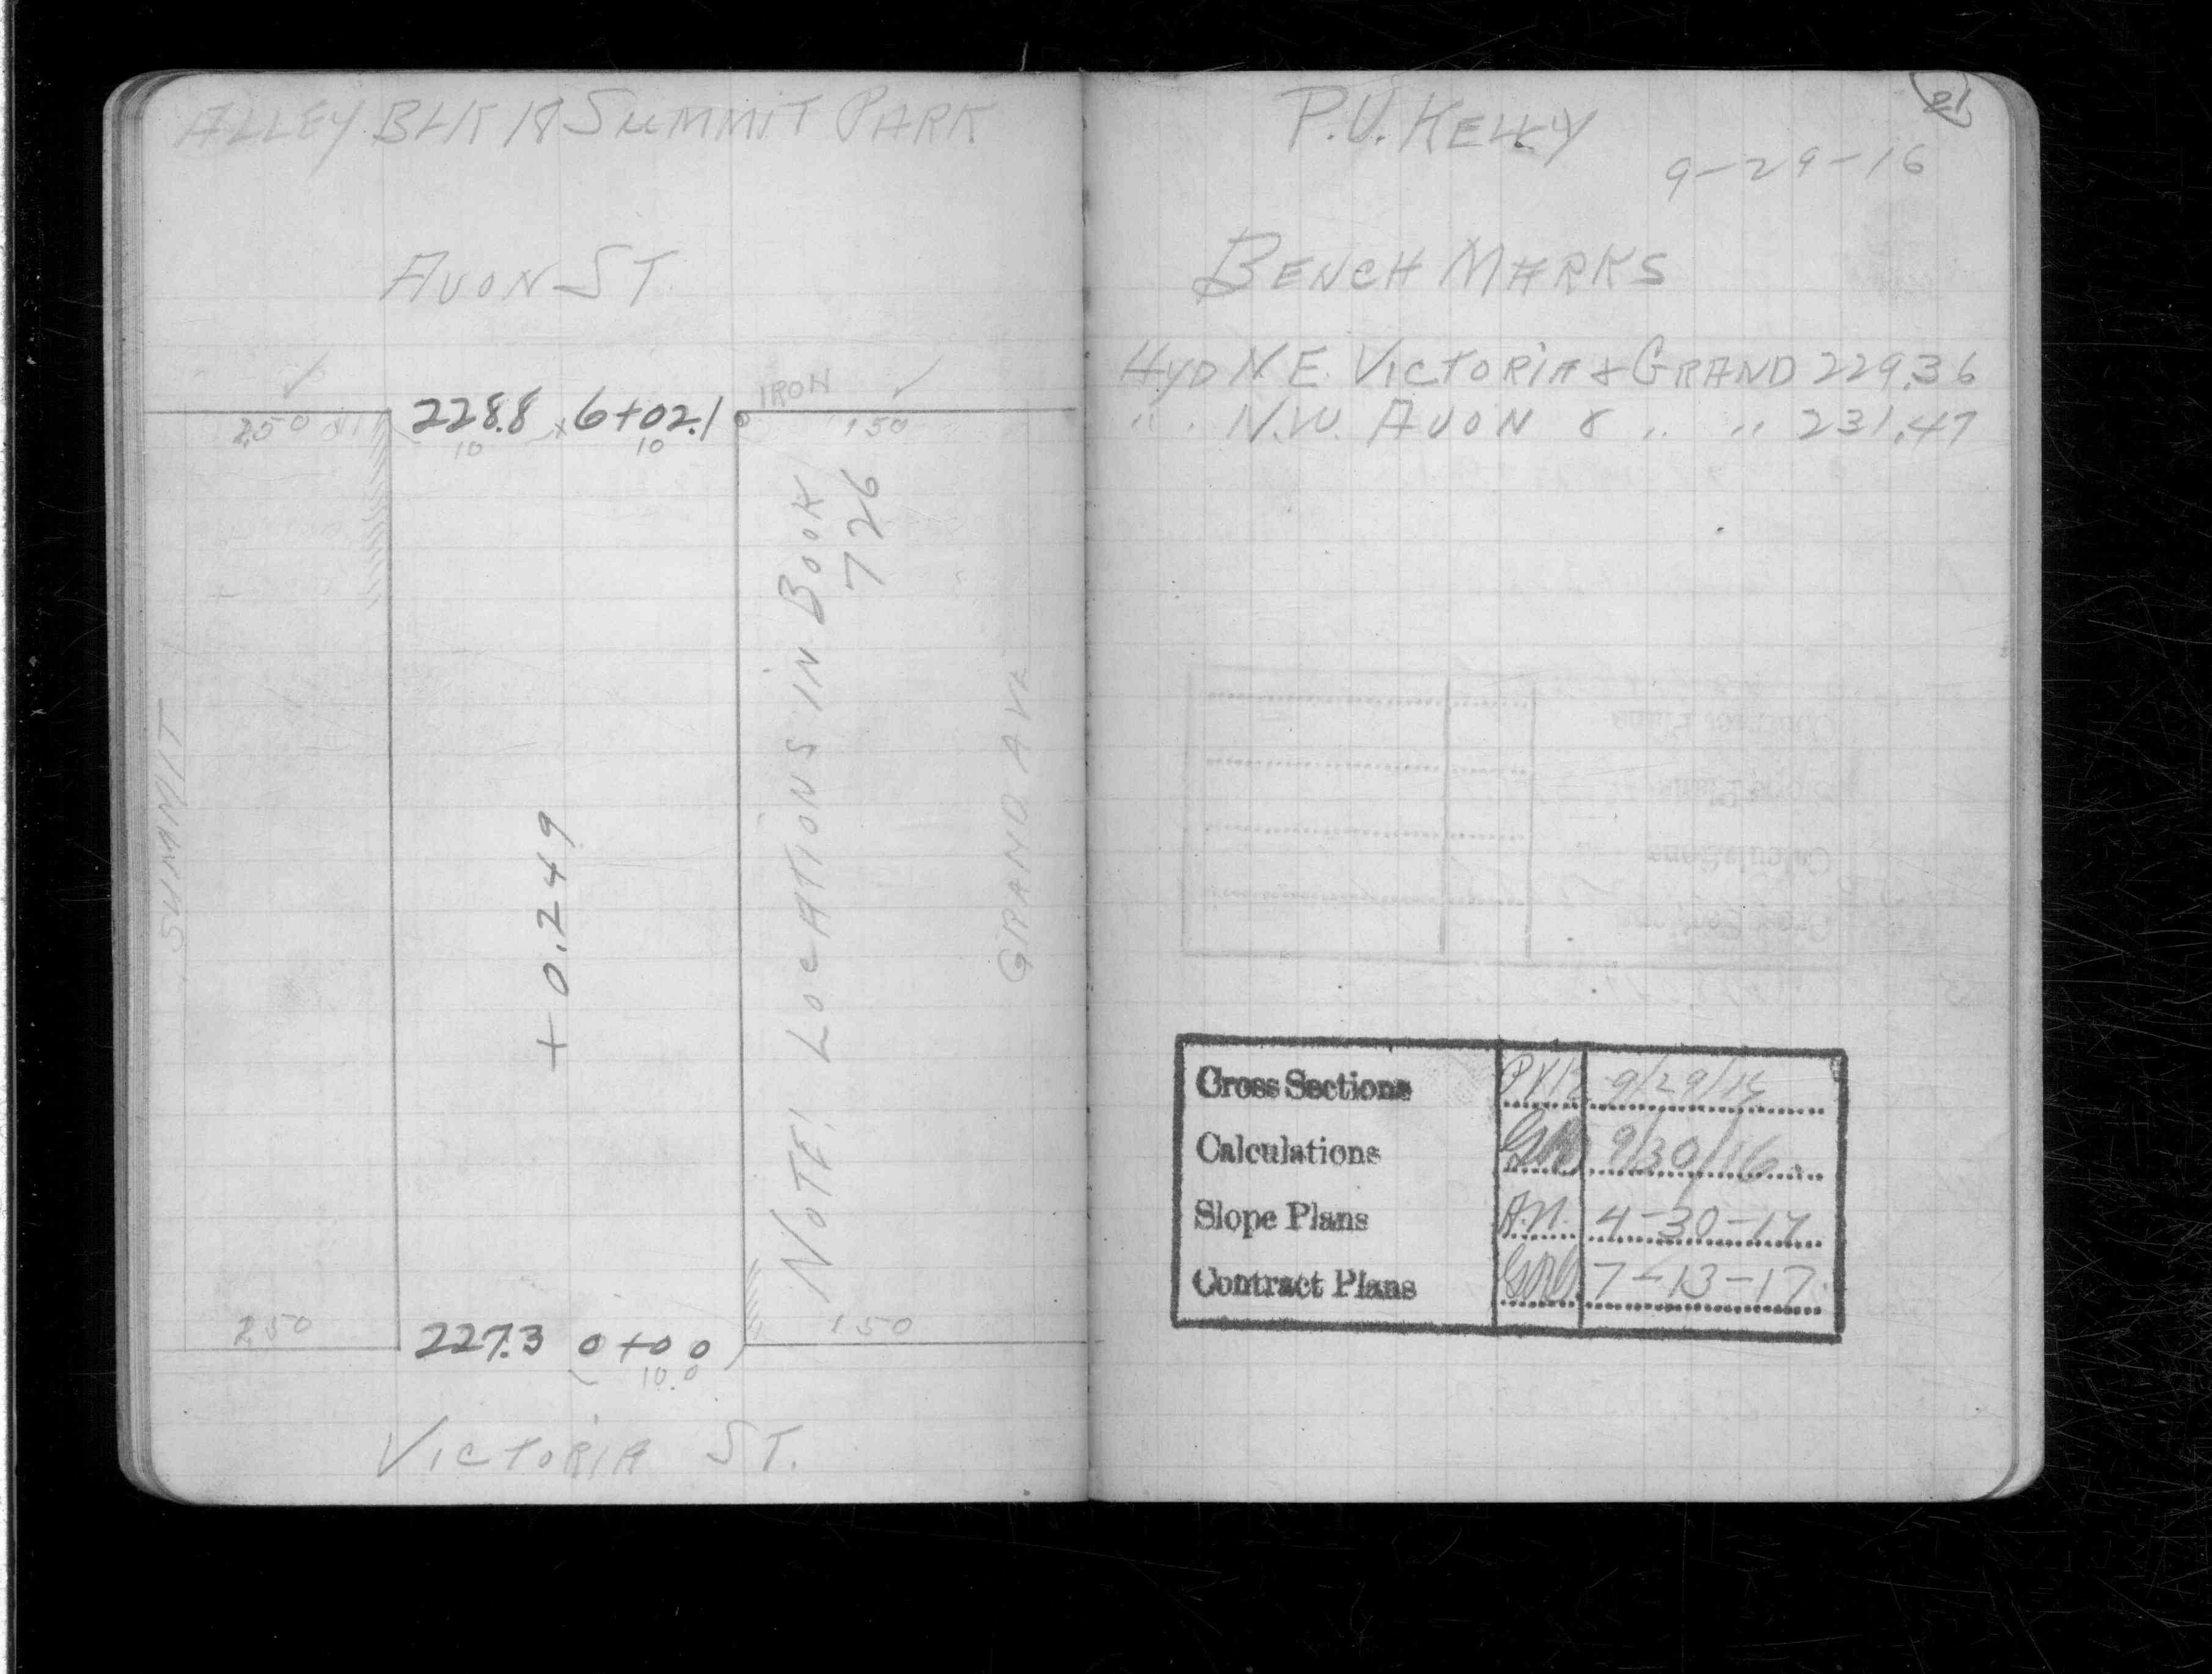 ALLEY BLK 18 SUMMIT PARK
AVON ST.
IRON
250
228.8 6+02.1
150
10 10
NOTE! LOCATIONS IN BOOK
726
+0.249
SUMMIT
GRAND AVE
250
227.3 0+00
150
10.0
VICTORIA ST.
21
P.V. KELLY
9-29-16
BENCH MARKS
HYD N.E. VICTORIA & GRAND 229.36
" . N.W. AVON & " " 231.47
Cross Sections PVK 9/29/16
Calculations 9/30/16
Slope Plans A.N. 4-30-17
Contract Plans 7-13-17